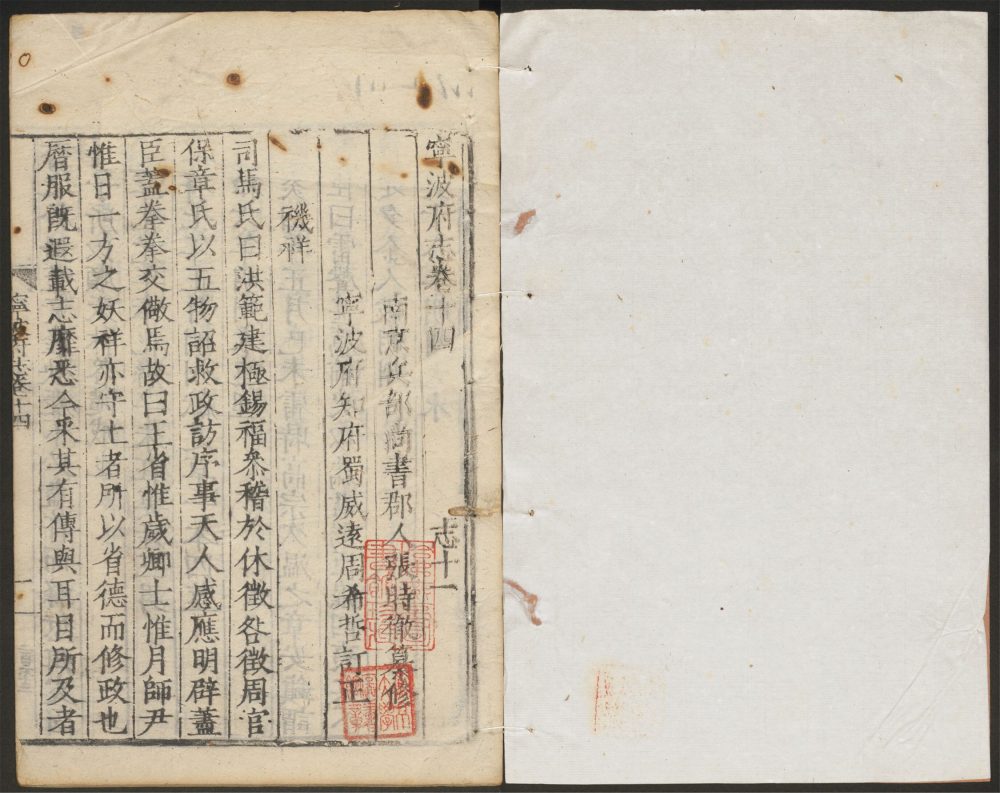 寧波府志卷十四 志十一
南京兵部尚書郡人張時徹纂修
寧波府知府蜀威遠周希哲訂正
禨祥
司馬氏曰洪範建極錫福叅稽於休徵咎徵周官
保章氏以五物詔救政訪序事天人感應明辟藎
臣蓋拳拳交儆焉故曰王省惟歲卿士惟月師尹
惟日一方之妖祥亦守土者所以省德而修政也
曆服旣遐載志靡悉今采其有傳與耳目所及者
寧波府志卷十四